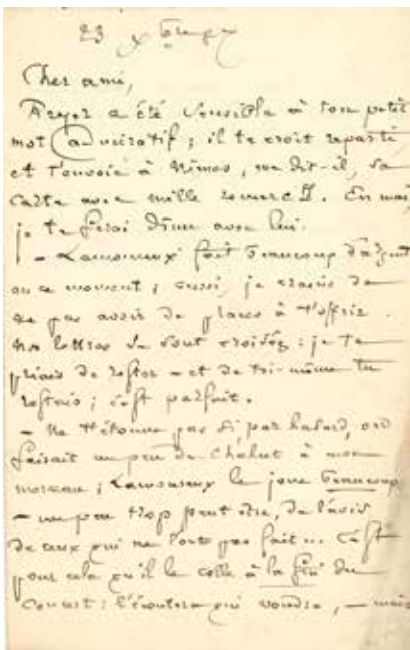 23 Xbre
Cher ami,
Fryer a été sensible à ton petit
mot admiratif ; il te croit reparti
et t'envoie à Nîmes, me dit-il, sa
carte avec mille remerc^ts. En mai
je te ferai dîner avec lui.
– Lamoureux fait beaucoup d'argent
en ce moment ; aussi, je crains de
ne pas avoir de places à t'offrir.
Nos lettres se sont croisées : je te
priais de rester – et de toi-même tu
restais ; c'est parfait.
– Ne t'étonne pas si, par hasard, on
faisait un peu de chahut à mon
morceau ; Lamoureux le joue beaucoup,
– un peu trop peut être, de l'avis
de ceux qui ne l'ont pas fait... C'est
pour cela qu'il le colle à la fin du
Concert : l'écoutera qui voudra, – mais